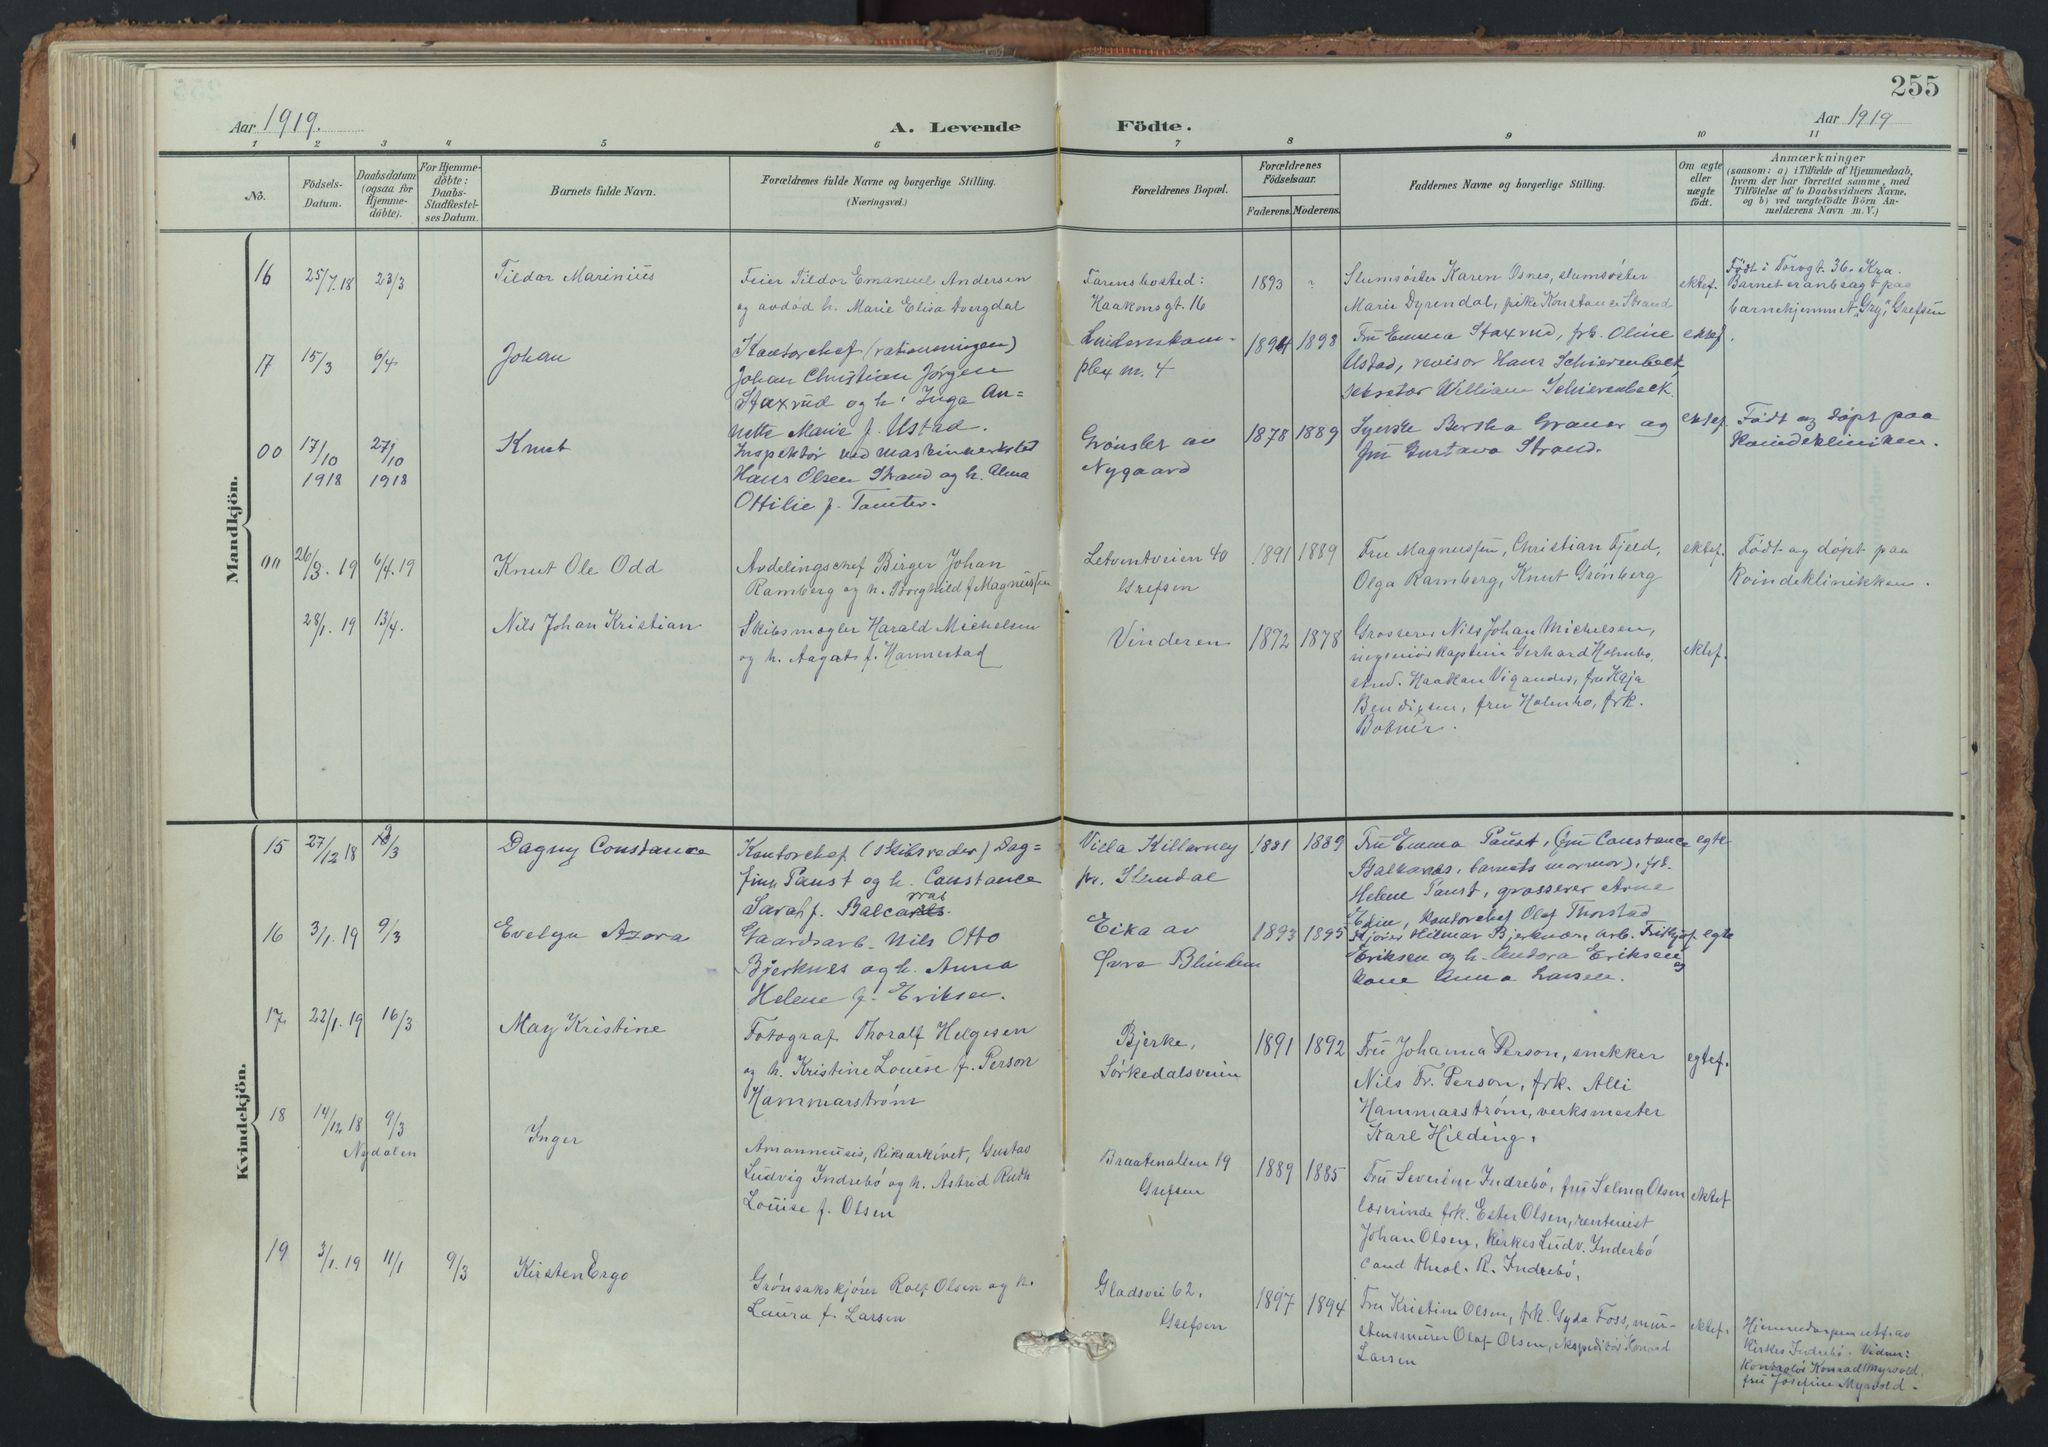 255
Aar 1919.
A. Levende
Födte.
Aar 1919
1 2 3 4 5 6 7 8 9 10 11
No.
Födsels-
Datum.
Daabsdatum
(ogsaa for
Hjemme-
döbte).
For Hjemme-
döbte:
Daabs-
Stadfæstel-
ses Datum.
Barnets fulde Navn.
Forældrenes fulde Navne og borgerlige Stilling.
(Næringsvei.)
Forældrenes Bopæl.
Forældrenes
Födselsaar.
Faderens.
Moderens.
Faddernes Navne og borgerlige Stilling.
Om ægte
eller
uægte
födt.
Anmærkninger
(saasom: a) i Tilfælde af Hjemmedaab,
hvem der har forrettet samme, med
Tilföielse af to Daabsvidners Navne,
og b) ved uægtefödte Börn An-
melderens Navn m. V.)
Mandkjön.
16
25/7.18
23/3
Tildar Marinius
Feier Tildor Emanuel Andersen
og avdød h. Marie Elisa Dvergdal
Farens bosted:
Haakonsgt. 16
1893
?
Slumsøster Karen Osnes, slumsøster
Marie Dyrendal, pike Konstance Strand
ektef.
Født i Torvgt. 36. Kra.
Barnet er anbragt paa
barnehjemmet "Gry", Grefsen
17
15/3
6/4
Johan
Kontorchef (rationeringen)
Johan Christian Jørgen
Staxrud og h. Inga An=
nette Marie f. Ustad.
Lindernkom-
plex m. 4
1894
1898
Fru Emma Staxrud, frk. Oline
Ustad, revisor Hans Schierenbeck,
sekretær William Schierenbeck.
ektef.
00
17/10
1918
27/10
1918
Knut
Inspektør ved mask. inverksted
Hans Olsen Strand og h. Alma
Ottilie f. Tamter.
Grønsler av
Nygaard
1878
1889
Syerske Bertha Graner og
fru Gustava Strand.
ektef.
Født og døpt paa
Kvindekliniken.
00
26/3. 19
6/4. 19
Knut Ole Odd
Avdelingschef Birger Johan
Ramberg og h. Borghild f. Magnussen
Letventveien 40
Grefsen
1891
1889
Fru Magnussen, Christian Fjeld,
Olga Ramberg, Knut Grønberg
ektef.
Født og døpt paa
Kvindeklinikken.
28/1. 19
13/4.
Nils Johan Kristian
Skibsmægler Harald Michelsen
og h. Aagot f. Hannestad
Vinderen
1872
1878
Grosserer Nils Johan Michelsen,
ingeniørkaptein Gerhard Holmbo,
stud. Haakon Vigander, fru Kaja
Bendixen, fru Holmbo, frk.
Botner.
ektef.
Kvindekjön.
15
27/12 18
2/3
Dagny Constance
Kontorchef (skibsreder) Dag=
finn Paust og h. Constance
Sarah f. Balcarras
Villa Killarney
pr. Slemdal
1881
1889
Fru Emma Paust, (fru Constance
Balkares, barnets mormor), frk.
Helene Paust, grosserer Arne
Edin, kontorchef Olaf Thorstad
egte
16
3/1. 19
9/3
Evelyn Azora
Gaardsarb. Nils Otto
Bjerknes og h. Anna
Helene f. Eriksen.
Eika av
Øvre Blindern
1893
1895
Kjører Hilmar Bjerknæs, arb. Fridtjof
Eriksen og h. Andora Eriksen og
kone Anna Larsen.
egte
17
22/1. 19
16/3
May Kristine
Fotograf Thoralf Helgesen
og h. Kristine Louise f. Person
Hammarstrøm
Bjerke,
Sørkedalsveien
1891
1892
Fru Johanna Person, snekker
Nils Fr. Person, frk. Alli
Hammarstrøm, verksmester
Karl Hilding.
egtef.
18
14/12 18
9/3
Nydalen
Inger
Amanuensis, Riksarkivet, Gustav
Ludvig Indrebø og h. Astrid Ruth
Louise f. Olsen
Braatenalleen 19
Grefsen
1889
1885
Fru Severine Indrebø, fru Selma Olsen
lærerinde frk. Ester Olsen, rentenist
Johan Olsen, kirkes. Ludv. Inderbö
cand. theol. R. Indrebø.
ektef.
19
3/1. 19
11/1
9/3
Kirsten Ergo
Grønsakskjører Rolf Olsen og h.
Laura f. Larsen
Gladsvei 62,
Grefsen
1897
1894
Fru Kristine Olsen, frk. Gyda Foss, mur-
stensmurer Olaf Olsen, ekspeditør Konrad
Larsen
ektef.
Hjemmedaapen utf. av
Kirkes. Indrebø. Vidner:
Kontrolør Konrad Myrvold,
fru Josefine Myrvold.